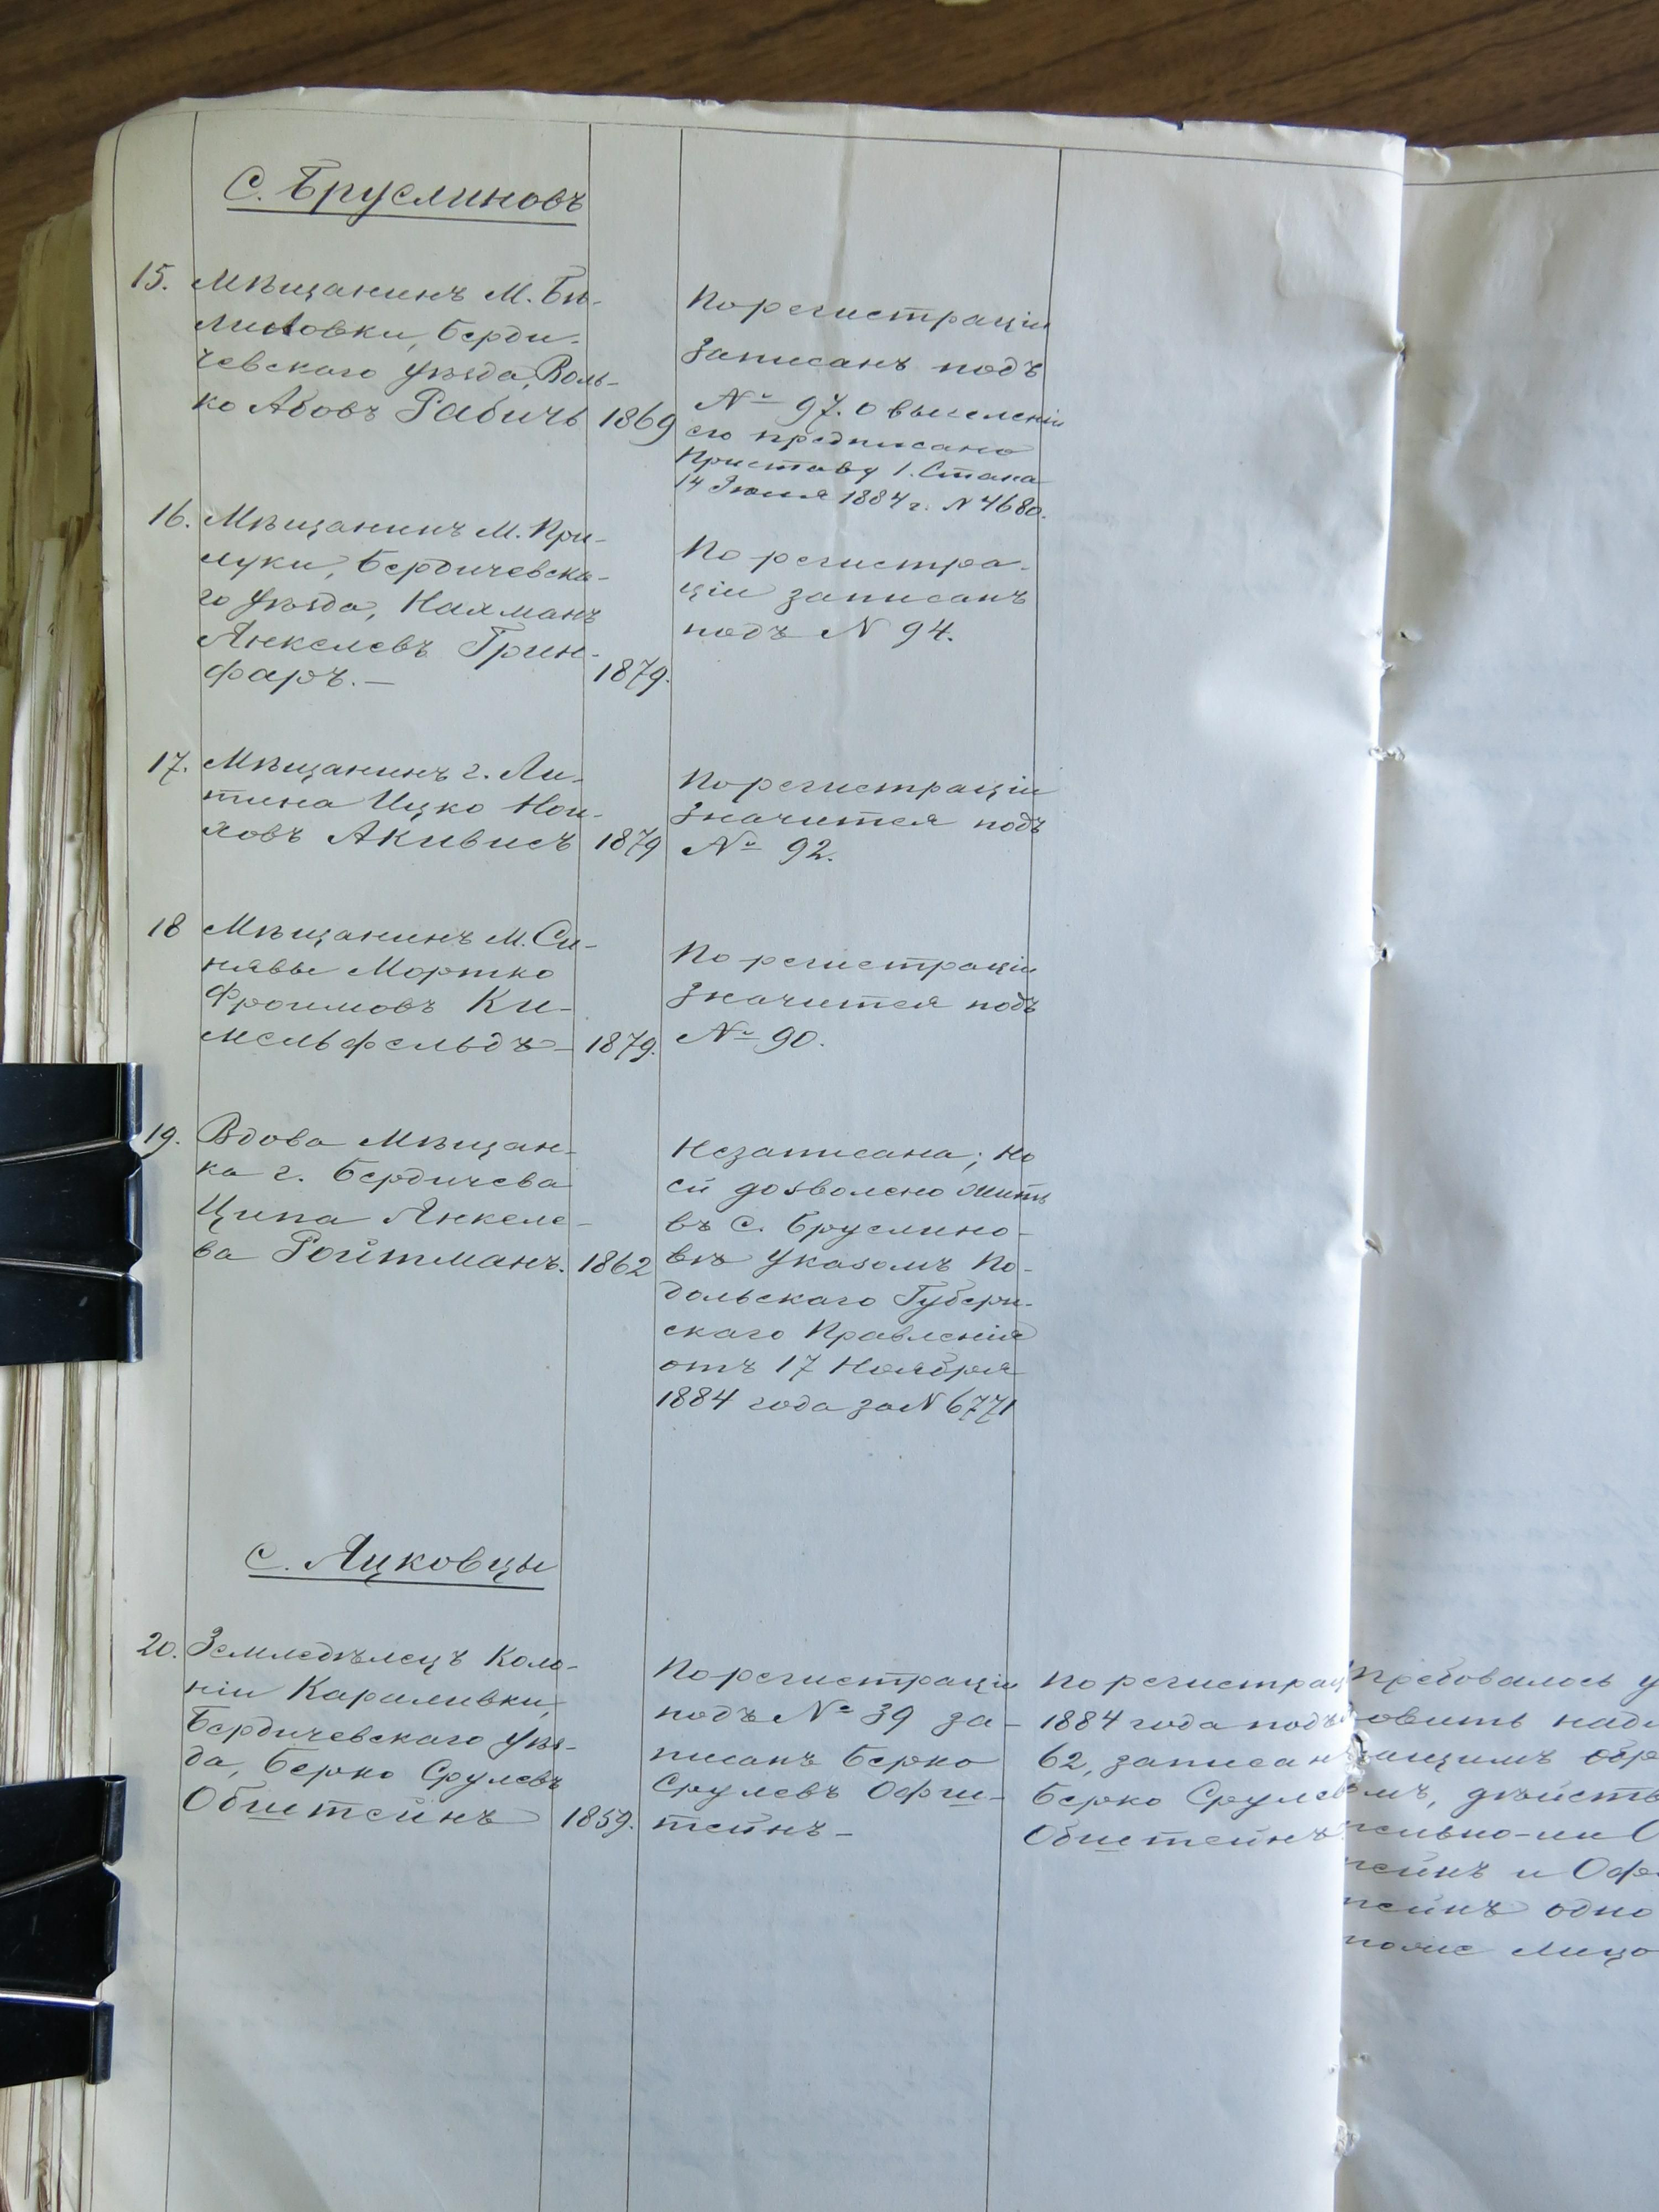 С. Бруслиновъ
15. Мѣщанинъ М. Би-
лиловки, Берди-
чевскаго уѣзда, Воль-
ко Абовъ Рабичъ 1869
По регистраціи
записанъ подъ
№ 97. о выселеніи
его предписано
Приставу 1. Стана
14 Июня 1884 г. N 4680.
16. Мѣщанинъ М. При-
луки, Бердичевска-
го уѣзда, Нахманъ
Янкелевъ Грин-
фаръ.— 1879.
По регистра-
ціи записанъ
подъ N 94.
17. Мѣщанинъ г. Ли-
тина Ицко Нои-
ховъ Акивисъ 1879
По регистраціи
значится подъ
№ 92.
18 Мѣщанинъ М. Си-
нявы Мортко
Фроимовъ Ки-
мельфельдъ— 1879.
По регистраціи
значится подъ
№ 90.
19. Вдова Мѣщан-
ка г. Бердичева
Ципа Янкеле-
ва Ройтманъ. 1862
Незаписана; но
ей дозволено жить
въ С. Бруслино-
вѣ указомъ По-
дольскаго Губерн-
скаго Правленія
отъ 17 Ноября
1884 года за N 6771
С. Яцковцы
20. Земледѣлецъ Коло-
ніи Караливки,
Бердичевскаго уѣз-
да, Берко Срулевъ
Обштейнъ 1859.
По регистраціи
подъ № 39 за-
писанъ Берко
Срулевъ Офш-
тейнъ—
По регистрац
1884 года подъ
62, записанъ
Берко Срулев
Обштейнъ
требовалось у
овить надл
ащимъ обр
мъ, дѣйств
тельно-ли О
тейнъ и Офш
тейнъ одно
тоже лицо